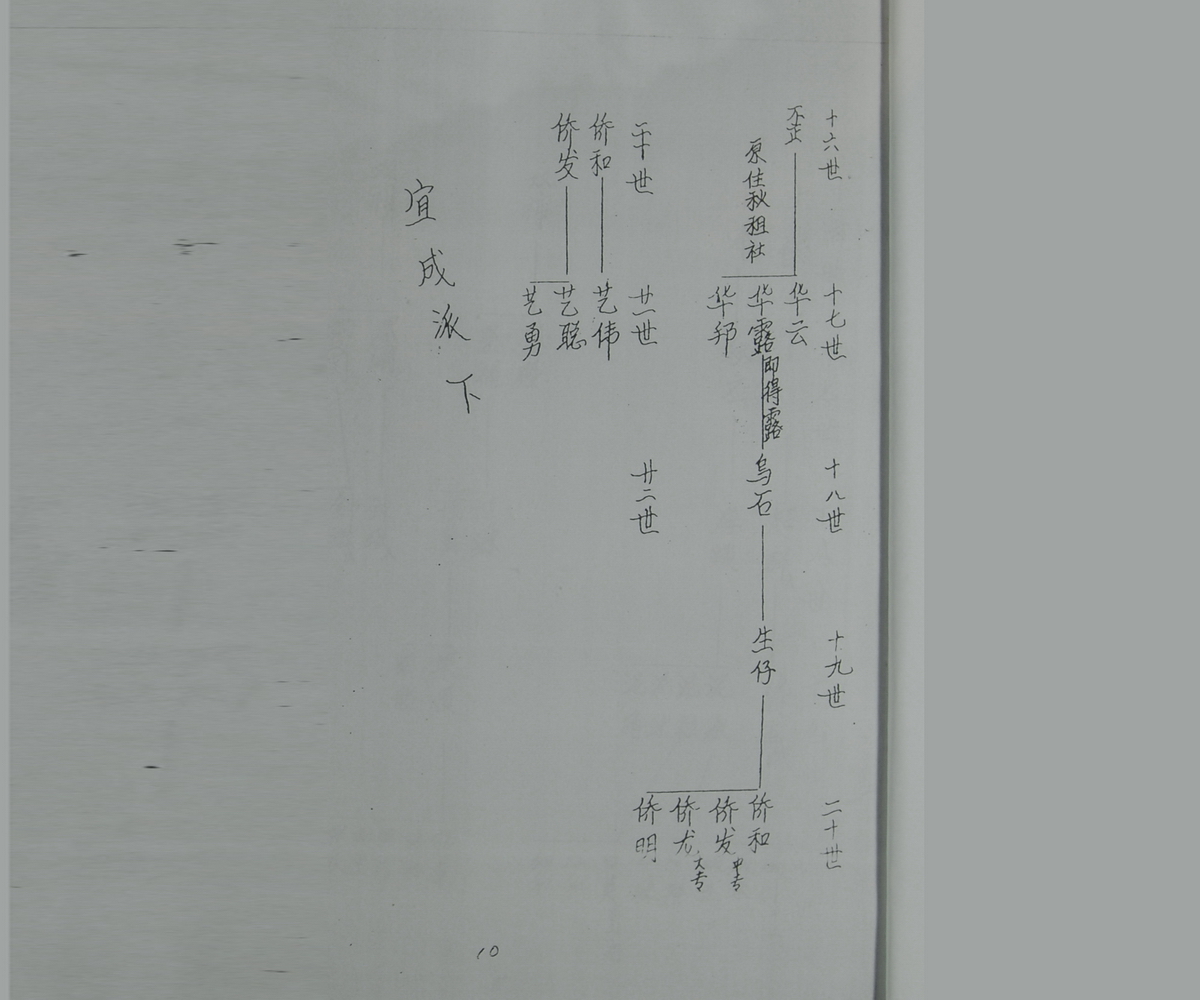 十六世 十七世 十八世 十九世 二十世
歪
原住秋租社
华云
华露即得露
华邦
乌石
生仔
侨和
侨发中专
侨龙大专
侨明
二十世 廿一世 廿二世
侨和
艺伟
侨发
艺聪
艺勇
宜成派下
10